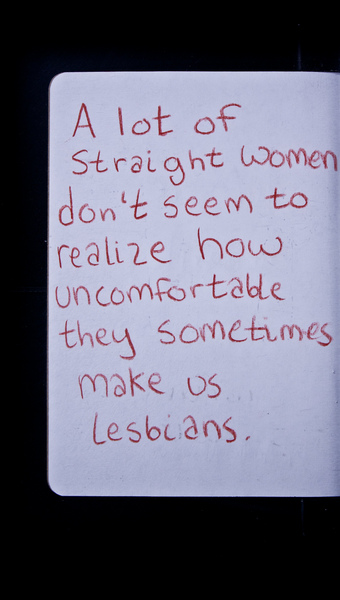 A lot of
Straight women
don't seem to
realize how
uncomfortable
they sometimes
make us
Lesbians.